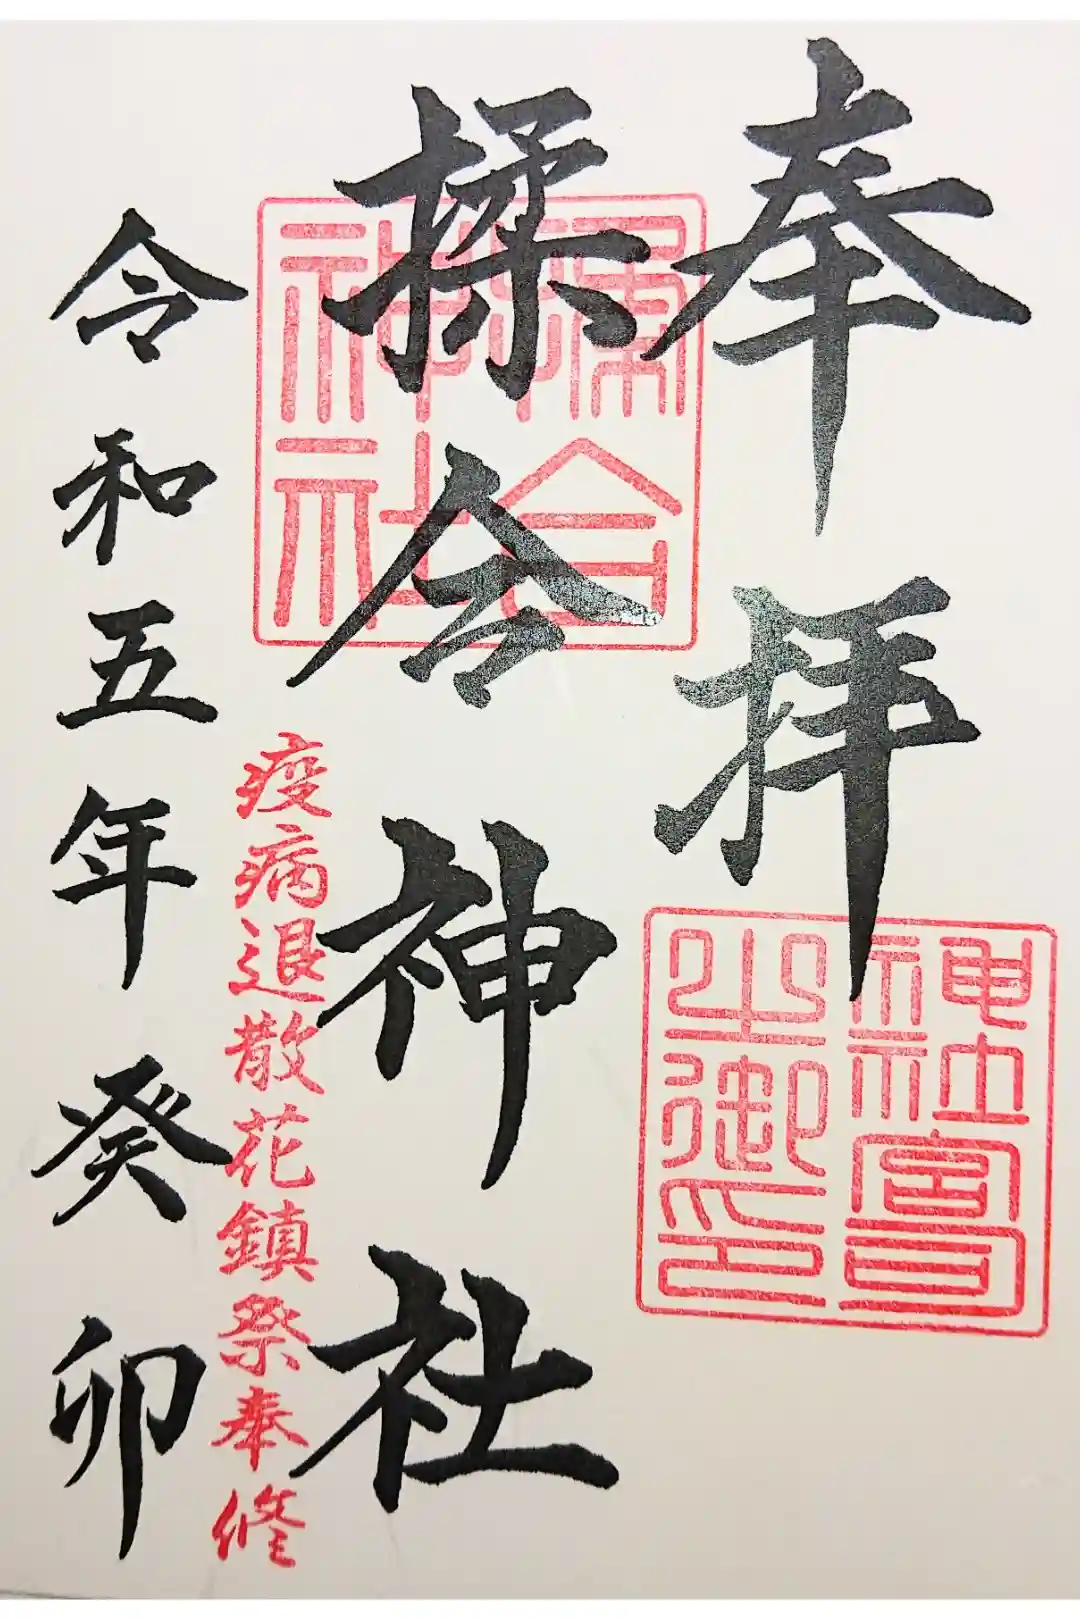 奉拝
揉合神社
疫病退散花鎮祭奉修
令和五年癸卯
合
神社
神社宮司
之御印